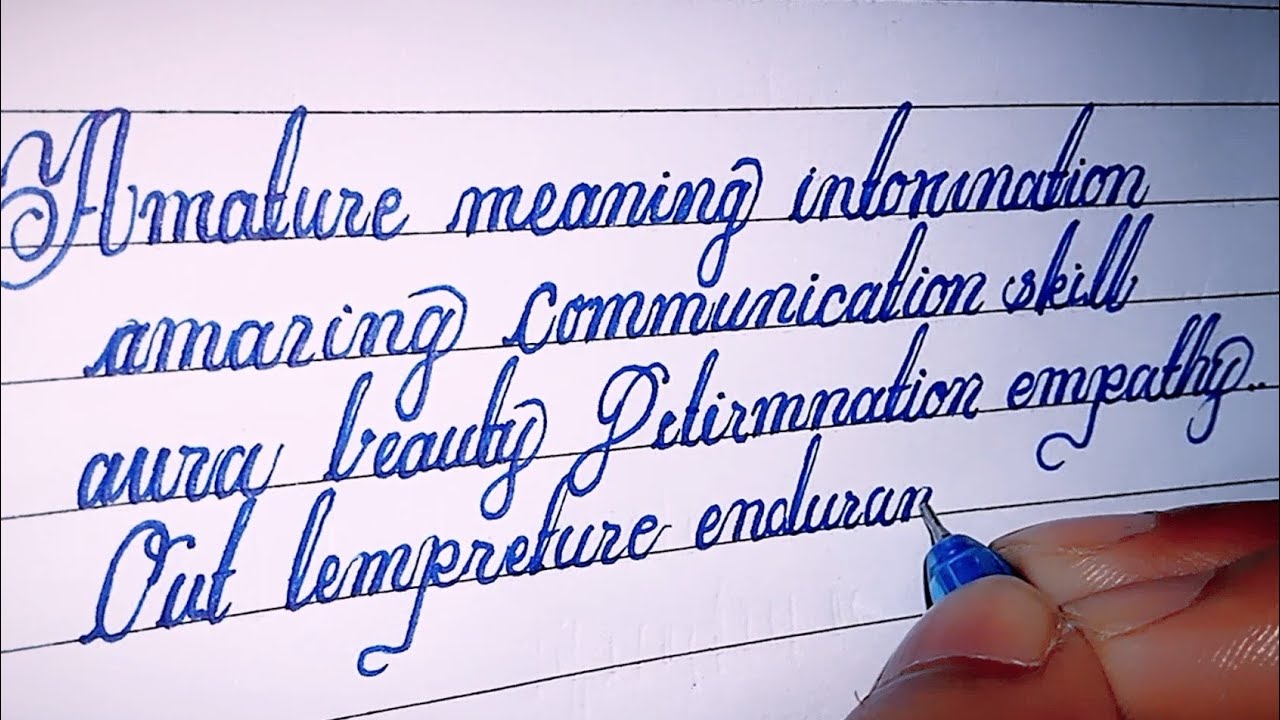 Amature meaning intoxination
amazing communication skill
aura beauty Detirmnation empathy..
Out tempreture enduran